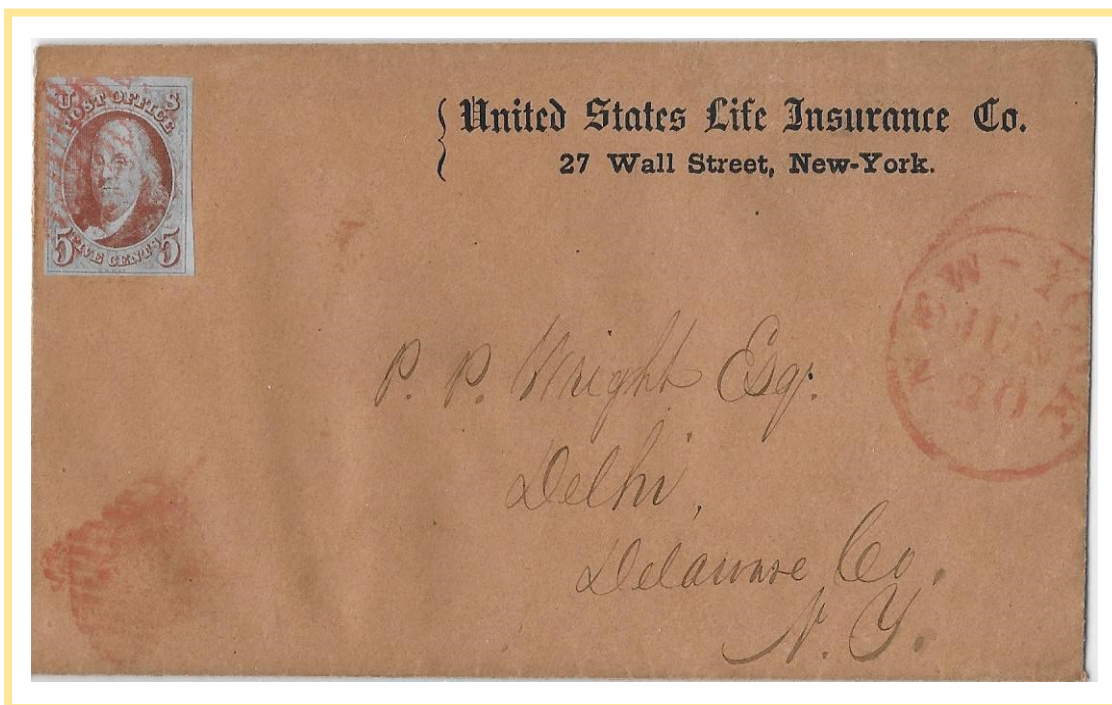 U S
POST OFFICE
5 FIVE CENTS 5
United States Life Insurance Co.
27 Wall Street, New-York.
NEW-YORK
20
P. P. Wright Esq.
Delhi,
Delaware Co.
N. Y.